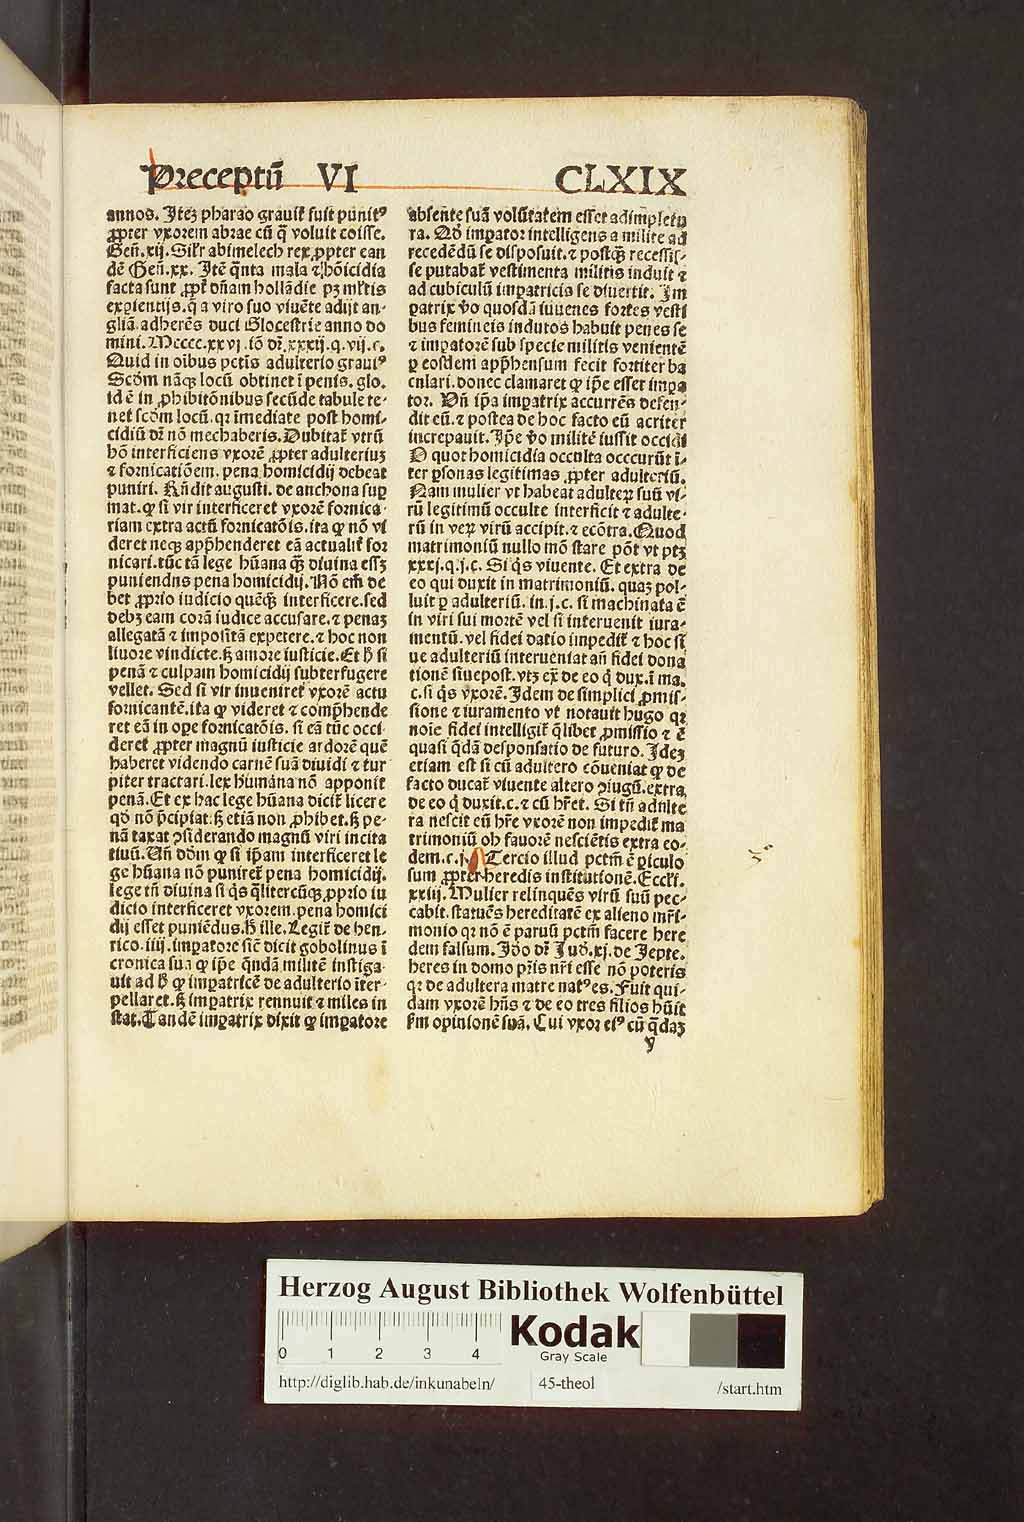 Preceptũ VI CLXIX
annos. Itẽ pharao grauit̉ fuit punitꝰ
ꝓpter vxorem abrae cũ q̃ voluit coisse.
Geñ.xij. Silr̃ abimelech rex ꝓpter ean
dẽ Geñ.xx. Itẽ q̃nta mala ⁊ hõicidia
facta sunt ꝓpt̉ dñam hollãdie pꝫ ml̃tis
exꝑientijs. q̃ a viro suo viuẽte adijt an-
gliã. adherẽs duci Glocestrie anno do
mini. Mcccc.xxvj. iõ dr̃.xxxij.q.vij.c.
Quid in oĩbus pctĩs adulterio grauiꝰ
Scd̃m nãqꝫ locũ obtinet ĩ penis. glo.
id ẽ in ꝓhibitõnibus secũde tabule te-
net scd̃m locũ. qꝛ ĩmediate post homi-
cidiũ dr̃ nõ mechaberis. Dubitat̉ vtrũ
hõ interficiens vxorẽ ꝓpter adulteriuꝫ
⁊ fornicatiõem. pena homicidij debeat
puniri. Rñdit augusti. de anchona suꝑ
mat. ꝙ si vir interficeret vxorẽ fornica-
riam extra actũ fornicatõis. ita ꝙ nõ vi
deret neqꝫ appͬhenderet eã actualit̉ for
nicari. tũc tã lege hũana q̃ꝫ diuina essꝫ
puniendns pena homicidij. Nõ em̃ de
bet ꝓprio iudicio quẽq̃ꝫ interficere. sed
debꝫ eam corã iudice accusare. ⁊ penaꝫ
allegatã ⁊ impositã expetere. ⁊ hoc non
liuore vindicte. ꝫ amore iusticie. Et h̃ si
penã ⁊ culpam homicidij subterfugere
vellet. Sed si vir inueniret vxorẽ actu
fornicantẽ. ita ꝙ videret ⁊ comp̃hende
ret eã in oꝑe fornicatõis. si eã tũc occi
deret ꝓpter magnũ iusticie ardorẽ quẽ
haberet videndo carnẽ suã diuidi ⁊ tur
piter tractari. lex humana nõ apponit
penã. Et ex hac lege hũana dicit̉ licere
qd̃ nõ p̃cipiat: ꝫ etiã non ꝓhibet. ꝫ pe-
nã taxat ꝯsiderando magnũ viri incita
tiuũ. Vñ dõm ꝙ si ip̃am interficeret le
ge hũana nõ puniret̉ pena homicidij.
lege tñ diuina si q̃s q̃litercũqꝫ ꝓprio iu
dicio interficeret vxorem. pena homici
dij esset puniẽdus. h̃ ille. Legit̉ de hen-
rico.iiij. imꝑatore sic̃ dicit gobolinus ĩ
cronica sua ꝙ ip̃e q̃ndã militẽ instiga-
uit ad h̃ ꝙ imꝑatricẽ de adulterio ĩter-
pellaret. ꝫ imꝑatrix rennuit ⁊ miles in
stat. Tandẽ imꝑatrix dixit ꝙ imꝑatore
absẽnte suã volũtatem esset adimpletu
ra. Qd̃ imꝑator intelligens a milite ad
recedẽdũ se disposuit. ⁊ postq̃ꝫ recessis-
se putabat̉ vestimenta militis induit ⁊
ad cubiculũ imꝑatricis se diuertit. Im
ꝑatrix v̉o quosdã iuuenes fortes vesti
bus femineis indutos habuit penes se
⁊ imꝑatorẽ sub specie militis venientẽ
ꝑ eosdem app̃hensum fecit fortiter ba
culari. donec clamaret ꝙ ip̃e esset imꝑa
tor. Vñ ip̃a imꝑatrix accurrẽs defen-
dit eũ. ⁊ postea de hoc facto eũ acriter
increpauit. Ip̃e v̉o militẽ iussit occidi
O quot homicidia occulta occcurũt ĩ-
ter ꝑsonas legitimas ꝓpter adulteriũ.
Nam mulier vt habeat adulteꝝ suũ vi-
rũ legitimũ occulte interficit ⁊ adulte-
rũ in veꝝ virũ accipit. ⁊ ecõtra. Quod
matrimoniũ nullo mõ stare põt vt ptꝫ
xxxj.q.j.c. Si q̃s viuente. Et extra de
eo qui duxit in matrimoniũ. quaꝫ pol-
luit ꝑ adulteriũ. in.j.c. si machinata ẽ
in viri sui mortẽ vel si interuenit iura-
mentũ. vel fidei datio impedit̉ ⁊ hoc si
ue adulteriũ interueniat añ fidei dona
tionẽ siue post. vtꝫ ex̃ de eo q̃ dux. ĩ ma.
c. si q̃s vxorẽ. Idem de simplici ꝓmis-
sione ⁊ iuramento vt notauit hugo qꝛ
noĩe fidei intelligit̉ q̃libet ꝓmissio ⁊ ẽ
quasi q̃dã desponsatio de futuro. Ideꝫ
etiam est si cũ adultero cõueniat ꝙ de
facto ducat̉ viuente altero ꝯiugũ. extra
de eo q̃ duxit. c. ⁊ cũ hr̃et. Si tñ adulte
ra nescit eũ hr̃e vxorẽ non impedit̉ ma
trimoniũ ob fauorẽ nesciẽtis extra eo-
dem. c.j. Tercio illud pctm̃ ẽ ꝑiculo
sum ꝓpter heredis institutionẽ. Eccl̃i.
xxiij. Mulier relinquẽs virũ suũ pec-
cabit. statuẽs hereditatẽ ex alieno mr̃i-
monio qꝛ nõ ẽ paruũ pctm̃ facere here
dem falsum. Iõo dr̃ Iud̃.xj. de Iepte.
heres in domo pr̃is nr̃i esse nõ poteris
qꝛ de adultera matre natꝰ es. Fuit qui-
dam vxorẽ hñs ⁊ de eo tres filios hũit
fm̃ opinionẽ suã. Cui vxor eiꝰ cũ q̃daꝫ
y
Herzog August Bibliothek Wolfenbüttel
0 1 2 3 4
Kodak
Gray Scale
http://diglib.hab.de/inkunabeln/ 45-theol /start.htm